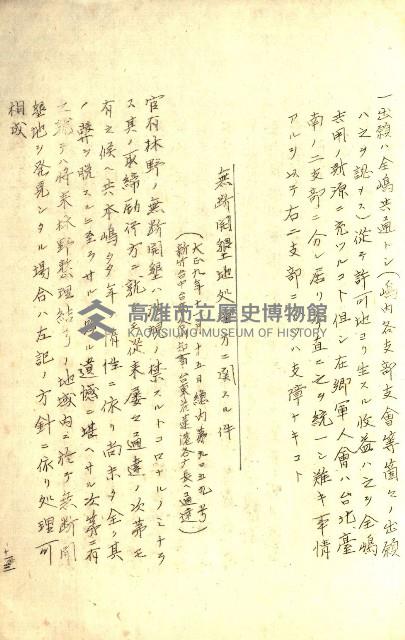 一 出願ハ全嶋共通トシ(嶋内各支部支會等箇々ノ出願
ハ之ヲ認メス)從テ許可地ヨリ生スル收益ハ之ヲ全嶋
共用ノ財源ニ充ツルコト但シ在郷軍人會ハ台北臺
南ノ二支部ニ分レ居リ直ニ之ヲ統一シ難キ事情
アルヲ以テ右二支部ニ 支障ナキコト
無断開墾地処 方ニ関スル件
大正九年 月 十五日總内第九〇五九号
新竹台中台 台東花蓮港各 長ヘ通達
官有林野ノ無断開墾ハ 禁スルトコロナルノミナラ
ス其ノ取締励行方ニ就 從来屡々通達ノ次第モ
有之候ヘ共本嶋 年 情性ニ依リ尚未タ全ク其
ノ弊ヲ脱スルニ至ラサル 遺憾ニ堪ヘサル次第ニ有
之 テハ将来林野整理結了ノ地域内ニ於テ無断開
墾地ヲ発見シタル場合ハ左記ノ方針ニ依リ処理可
相成
高雄市立歷史博物館
KAOHSIUNG MUSEUM OF HISTORY